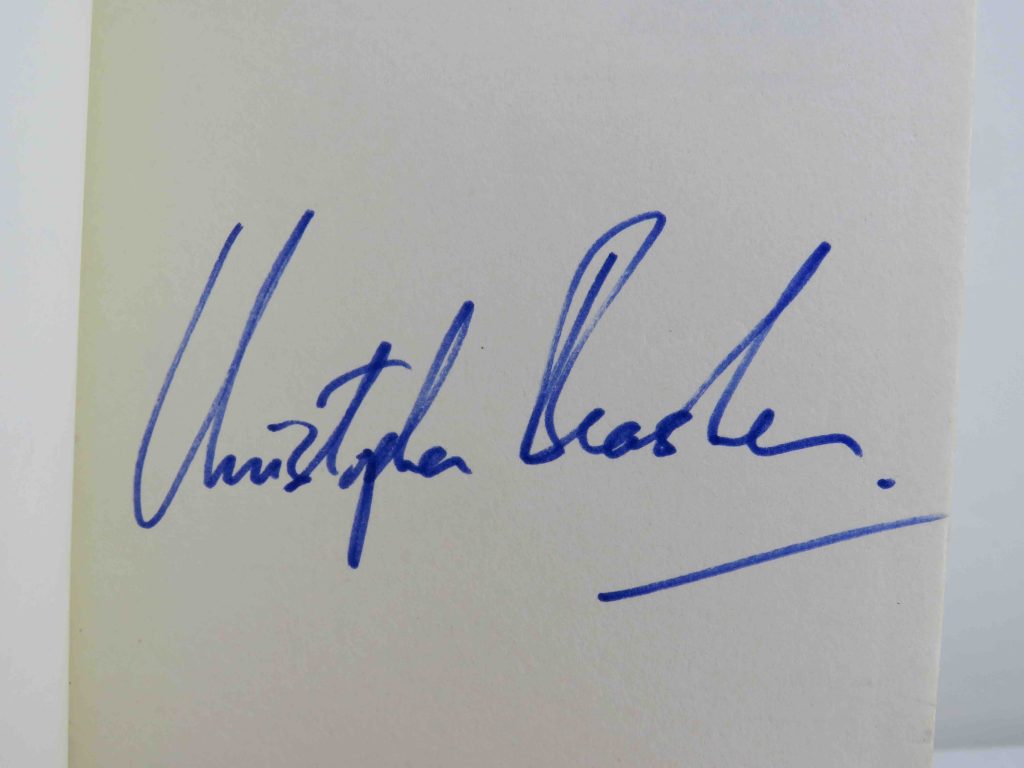 Christopher Brasher.